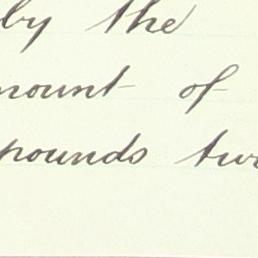 by the
mount of
pounds tw